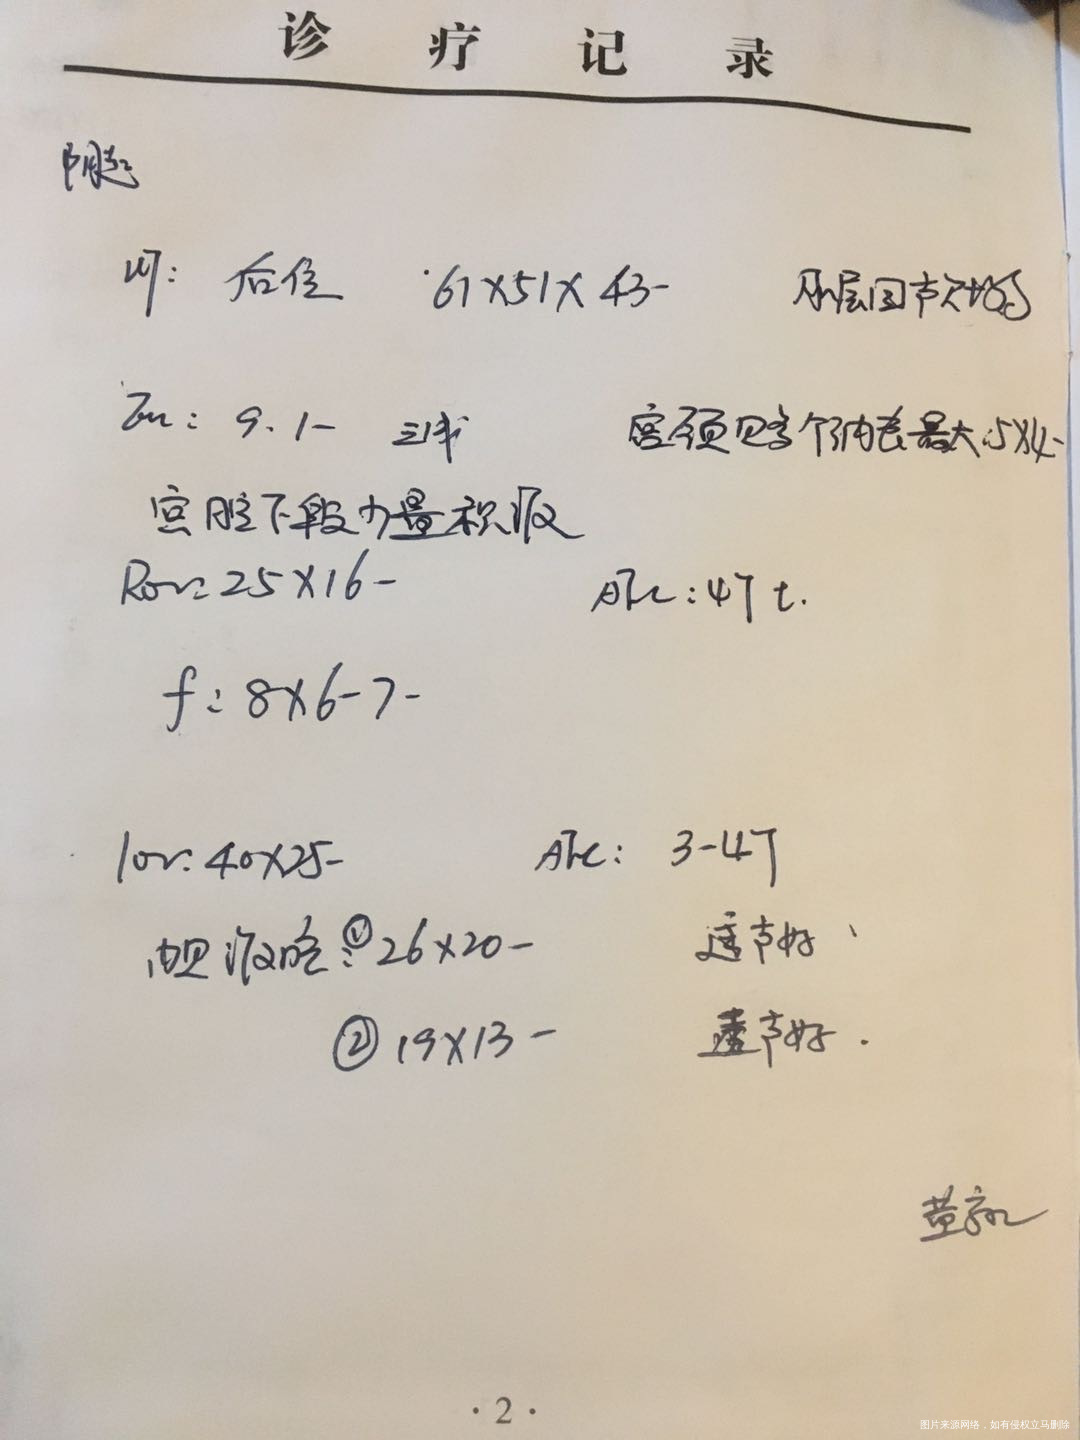 诊疗记录
阴超
UT: 后位 61X51X43- 肌层回声欠均匀
Em: 9.1- 三线 宫颈见多个纳囊最大5X4-
宫腔下段少量积液
Rov: 25X16- AFc: 4个
f: 8X6-7-
lov: 40X25- AFc: 3-4个
内见液暗: ① 26X20- 透声好
② 19X13- 透声好.
·2·
图片来源网络，如有侵权立马删除